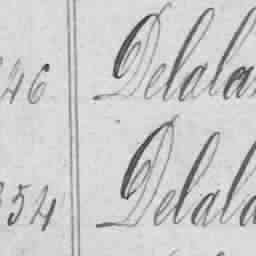 46 Delala
54 Delala